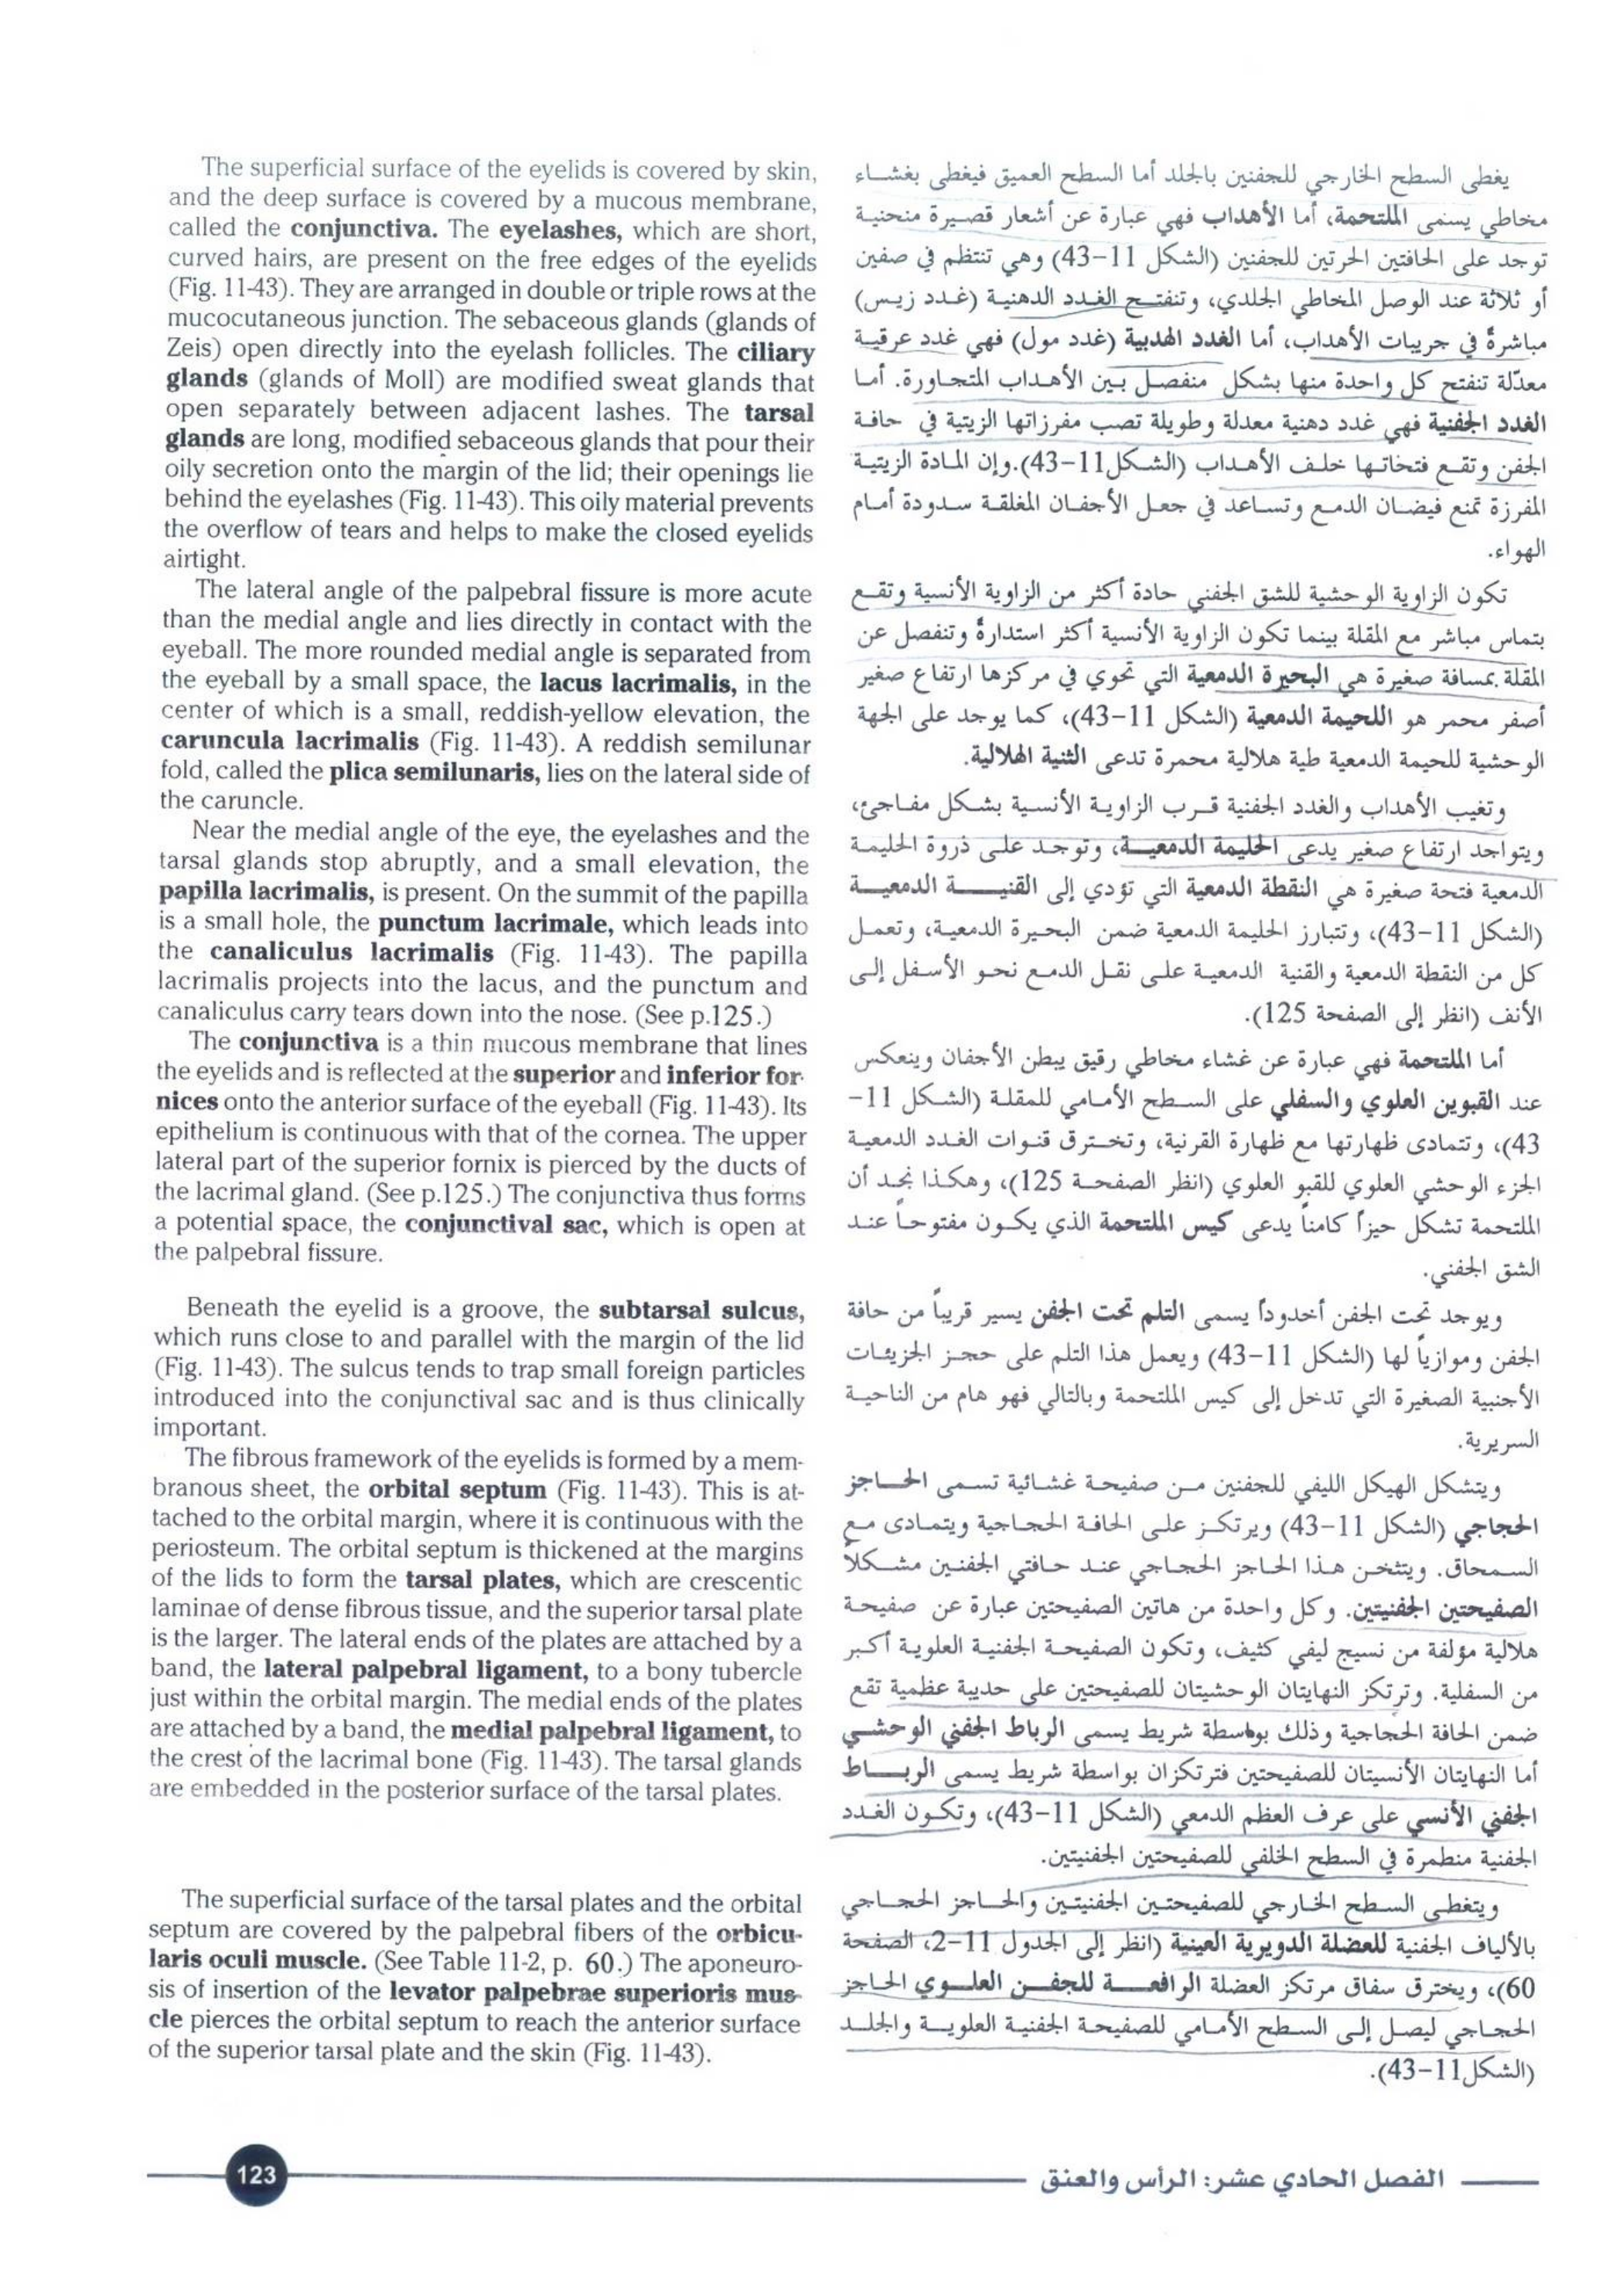 The superficial surface of the eyelids is covered by skin,
and the deep surface is covered by a mucous membrane,
called the conjunctiva. The eyelashes, which are short,
curved hairs, are present on the free edges of the eyelids
(Fig. 11-43). They are arranged in double or triple rows at the
mucocutaneous junction. The sebaceous glands (glands of
Zeis) open directly into the eyelash follicles. The ciliary
glands (glands of Moll) are modified sweat glands that
open separately between adjacent lashes. The tarsal
glands are long, modified sebaceous glands that pour their
oily secretion onto the margin of the lid; their openings lie
behind the eyelashes (Fig. 11-43). This oily material prevents
the overflow of tears and helps to make the closed eyelids
airtight.
The lateral angle of the palpebral fissure is more acute
than the medial angle and lies directly in contact with the
eyeball. The more rounded medial angle is separated from
the eyeball by a small space, the lacus lacrimalis, in the
center of which is a small, reddish-yellow elevation, the
caruncula lacrimalis (Fig. 11-43). A reddish semilunar
fold, called the plica semilunaris, lies on the lateral side of
the caruncle.
Near the medial angle of the eye, the eyelashes and the
tarsal glands stop abruptly, and a small elevation, the
papilla lacrimalis, is present. On the summit of the papilla
is a small hole, the punctum lacrimale, which leads into
the canaliculus lacrimalis (Fig. 11-43). The papilla
lacrimalis projects into the lacus, and the punctum and
canaliculus carry tears down into the nose. (See p.125.)
The conjunctiva is a thin mucous membrane that lines
the eyelids and is reflected at the superior and inferior for-
nices onto the anterior surface of the eyeball (Fig. 11-43). Its
epithelium is continuous with that of the cornea. The upper
lateral part of the superior fornix is pierced by the ducts of
the lacrimal gland. (See p.125.) The conjunctiva thus forms
a potential space, the conjunctival sac, which is open at
the palpebral fissure.
Beneath the eyelid is a groove, the subtarsal sulcus,
which runs close to and parallel with the margin of the lid
(Fig. 11-43). The sulcus tends to trap small foreign particles
introduced into the conjunctival sac and is thus clinically
important.
The fibrous framework of the eyelids is formed by a mem-
branous sheet, the orbital septum (Fig. 11-43). This is at-
tached to the orbital margin, where it is continuous with the
periosteum. The orbital septum is thickened at the margins
of the lids to form the tarsal plates, which are crescentic
laminae of dense fibrous tissue, and the superior tarsal plate
is the larger. The lateral ends of the plates are attached by a
band, the lateral palpebral ligament, to a bony tubercle
just within the orbital margin. The medial ends of the plates
are attached by a band, the medial palpebral ligament, to
the crest of the lacrimal bone (Fig. 11-43). The tarsal glands
are embedded in the posterior surface of the tarsal plates.
The superficial surface of the tarsal plates and the orbital
septum are covered by the palpebral fibers of the orbicu-
laris oculi muscle. (See Table 11-2, p. 60.) The aponeuro-
sis of insertion of the levator palpebrae superioris mus-
cle pierces the orbital septum to reach the anterior surface
of the superior tarsal plate and the skin (Fig. 11-43).
يغطى السطح الخارجي للجفنين بالجلد أما السطح العميق فيغطى بغشاء
مخاطي يسمى الملتحمة، أما الأهداب فهي عبارة عن أشعار قصيرة منحنية
توجد على الحافتين الحرتين للجفنين (الشكل 11-43) وهي تنتظم في صفين
أو ثلاثة عند الوصل المخاطي الجلدي، وتنفتح الغدد الدهنية (غدد زيس)
مباشرةً في جريبات الأهداب، أما الغدد الهدبية (غدد مول) فهي غدد عرقية
معدّلة تنفتح كل واحدة منها بشكل منفصل بين الأهداب المتجاورة. أما
الغدد الجفنية فهي غدد دهنية معدلة وطويلة تصب مفرزاتها الزيتية في حافة
الجفن وتقع فتحاتها خلف الأهداب (الشكل11-43).وإن المادة الزيتية
المفرزة تمنع فيضان الدمع وتساعد في جعل الأجفان المغلقة سدودة أمام
الهواء.
تكون الزاوية الوحشية للشق الجفني حادة أكثر من الزاوية الأنسية وتقع
بتماس مباشر مع المقلة بينما تكون الزاوية الأنسية أكثر استدارةً وتنفصل عن
المقلة بمسافة صغيرة هي البحيرة الدمعية التي تحوي في مركزها ارتفاع صغير
أصفر محمر هو اللحيمة الدمعية (الشكل 11-43)، كما يوجد على الجهة
الوحشية للحيمة الدمعية طية هلالية محمرة تدعى الثنية الهلالية.
وتغيب الأهداب والغدد الجفنية قرب الزاوية الأنسية بشكل مفاجئ،
ويتواجد ارتفاع صغير يدعى الحليمة الدمعية، وتوجد على ذروة الحليمة
الدمعية فتحة صغيرة هي النقطة الدمعية التي تؤدي إلى القنية الدمعية
(الشكل 11-43)، وتتبارز الحليمة الدمعية ضمن البحيرة الدمعية، وتعمل
كل من النقطة الدمعية والقنية الدمعية على نقل الدمع نحو الأسفل إلى
الأنف (انظر إلى الصفحة 125).
أما الملتحمة فهي عبارة عن غشاء مخاطي رقيق يبطن الأجفان وينعكس
عند القبوين العلوي والسفلي على السطح الأمامي للمقلة (الشكل 11-
43)، وتتمادى ظهارتها مع ظهارة القرنية، وتخترق قنوات الغدد الدمعية
الجزء الوحشي العلوي للقبو العلوي (انظر الصفحة 125)، وهكذا نجد أن
الملتحمة تشكل حيزاً كامناً يدعى كيس الملتحمة الذي يكون مفتوحاً عند
الشق الجفني.
ويوجد تحت الجفن أخدوداً يسمى التلم تحت الجفن يسير قريباً من حافة
الجفن وموازياً لها (الشكل 11-43) ويعمل هذا التلم على حجز الجزيئات
الأجنبية الصغيرة التي تدخل إلى كيس الملتحمة وبالتالي فهو هام من الناحية
السريرية.
ويتشكل الهيكل الليفي للجفنين من صفيحة غشائية تسمى الحاجز
الحجاجي (الشكل 11-43) ويرتكز على الحافة الحجاجية ويتمادى مع
السمحاق. ويتثخن هذا الحاجز الحجاجي عند حافتي الجفنين مشكلاً
الصفيحتين الجفنيتين. وكل واحدة من هاتين الصفيحتين عبارة عن صفيحة
هلالية مؤلفة من نسيج ليفي كثيف، وتكون الصفيحة الجفنية العلوية أكبر
من السفلية. وترتكز النهايتان الوحشيتان للصفيحتين على حديبة عظمية تقع
ضمن الحافة الحجاجية وذلك بواسطة شريط يسمى الرباط الجفني الوحشي
أما النهايتان الأنسيتان للصفيحتين فترتكزان بواسطة شريط يسمى الرباط
الجفني الأنسي على عرف العظم الدمعي (الشكل 11-43)، وتكون الغدد
الجفنية منطمرة في السطح الخلفي للصفيحتين الجفنيتين.
ويتغطى السطح الخارجي للصفيحتين الجفنيتين والحاجز الحجاجي
بالألياف الجفنية للعضلة الدويرية العينية (انظر إلى الجدول 11-2، الصفحة
60)، ويخترق سفاق مرتكز العضلة الرافعة للجفن العلوي الحاجز
الحجاجي ليصل إلى السطح الأمامي للصفيحة الجفنية العلوية والجلد
(الشكل11-43).
123
الفصل الحادي عشر: الرأس والعنق